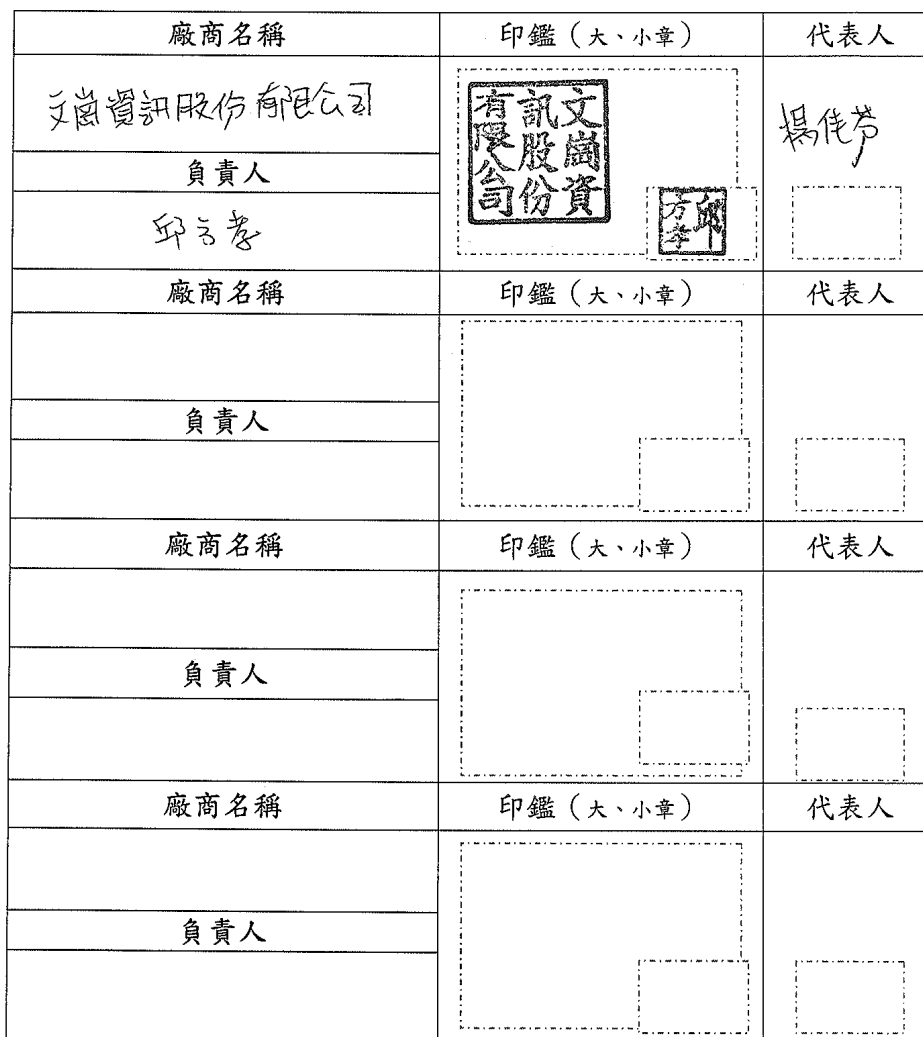 廠商名稱 印鑑(大、小章) 代表人
文崗資訊股份有限公司
文崗資訊股份有限公司
楊佳芳
負責人
邱方孝
邱方孝
廠商名稱 印鑑(大、小章) 代表人
負責人
廠商名稱 印鑑(大、小章) 代表人
負責人
廠商名稱 印鑑(大、小章) 代表人
負責人